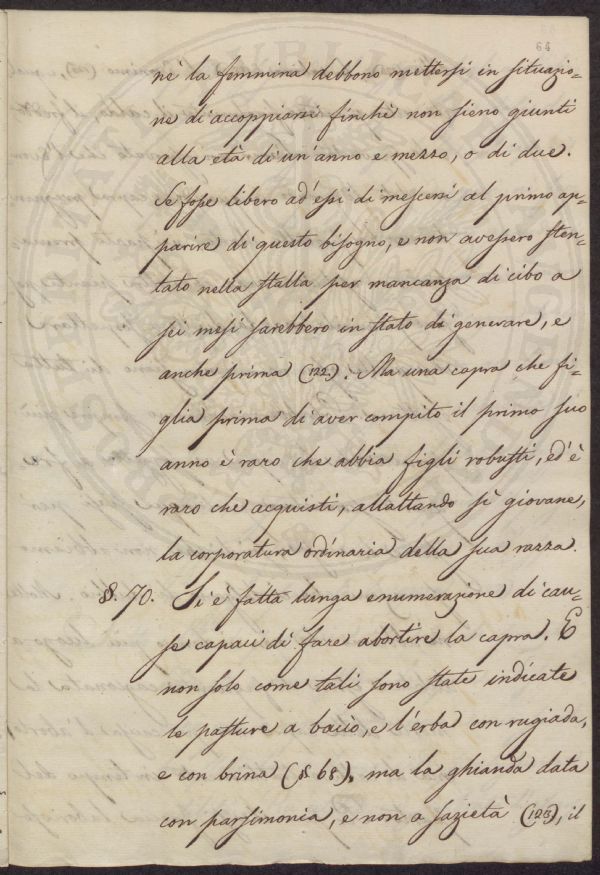 64
nè la femmina debbono mettersi in situazio=
ne di accoppiarsi finchè non sieno giunti
alla età di un'anno e mezzo, o di due.
Se fosse libero ad'essi di mescersi al primo ap=
parire di questo bisogno, e non avessero sten=
tato nella stalla per mancanza di cibo a
sei mesi sarebbero in stato di generare, e
anche prima (122). Ma una capra che fi=
glia prima di aver compito il primo suo
anno è raro che abbia figli robusti, ed'è
raro che acquisti, allattando sì giovane,
la corporatura ordinaria della sua razza.
§. 70. Si è fatta lunga enumerazione di cau=
se capaci di fare abortire la capra. E
non solo come tali sono state indicate
le pasture a bacio, e l'erba con rugiada,
e con brina (§ 68), ma la ghianda data
con parsimonia, e non a sazietà (123), il